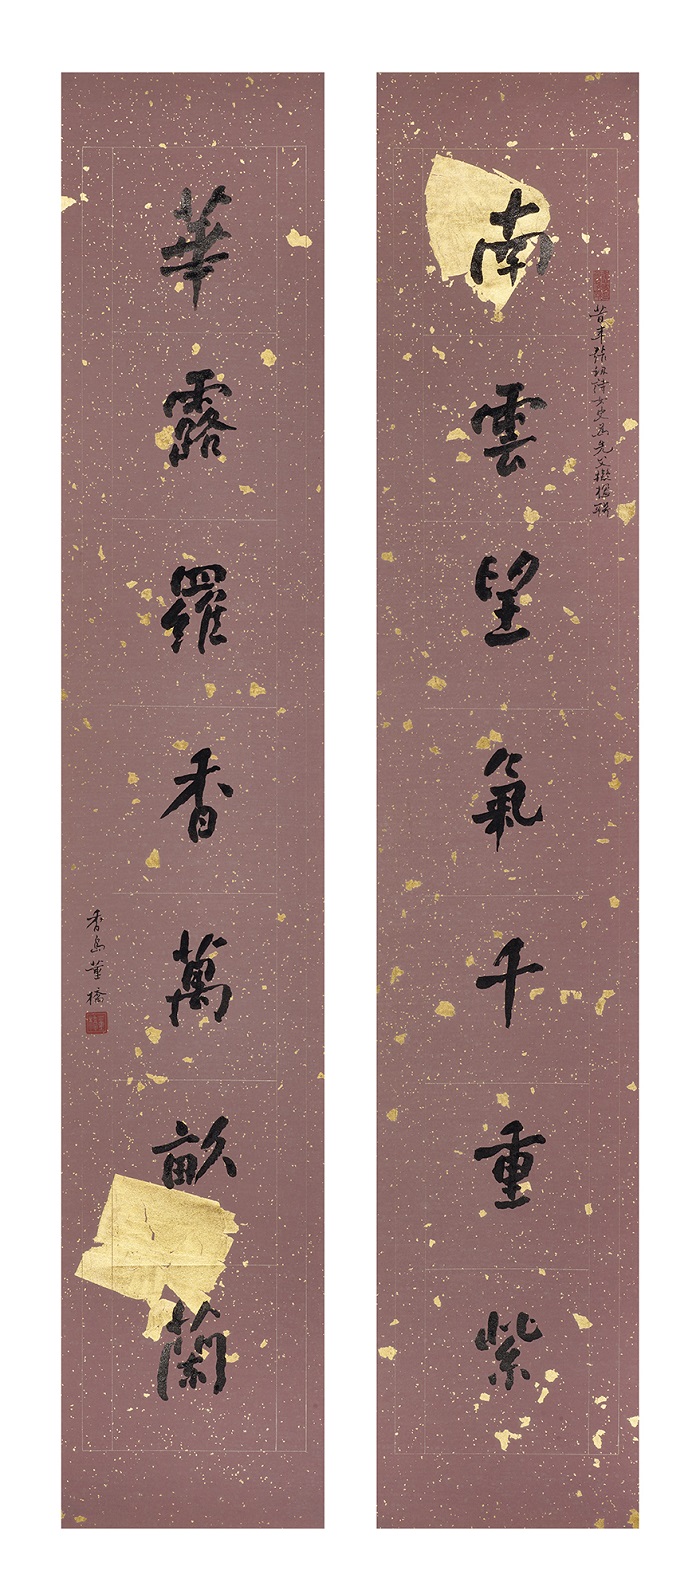 昔年張紉詩女史為先父撰楹聯
南雲望氣千重紫
華露羅香萬畝蘭
香島董橋